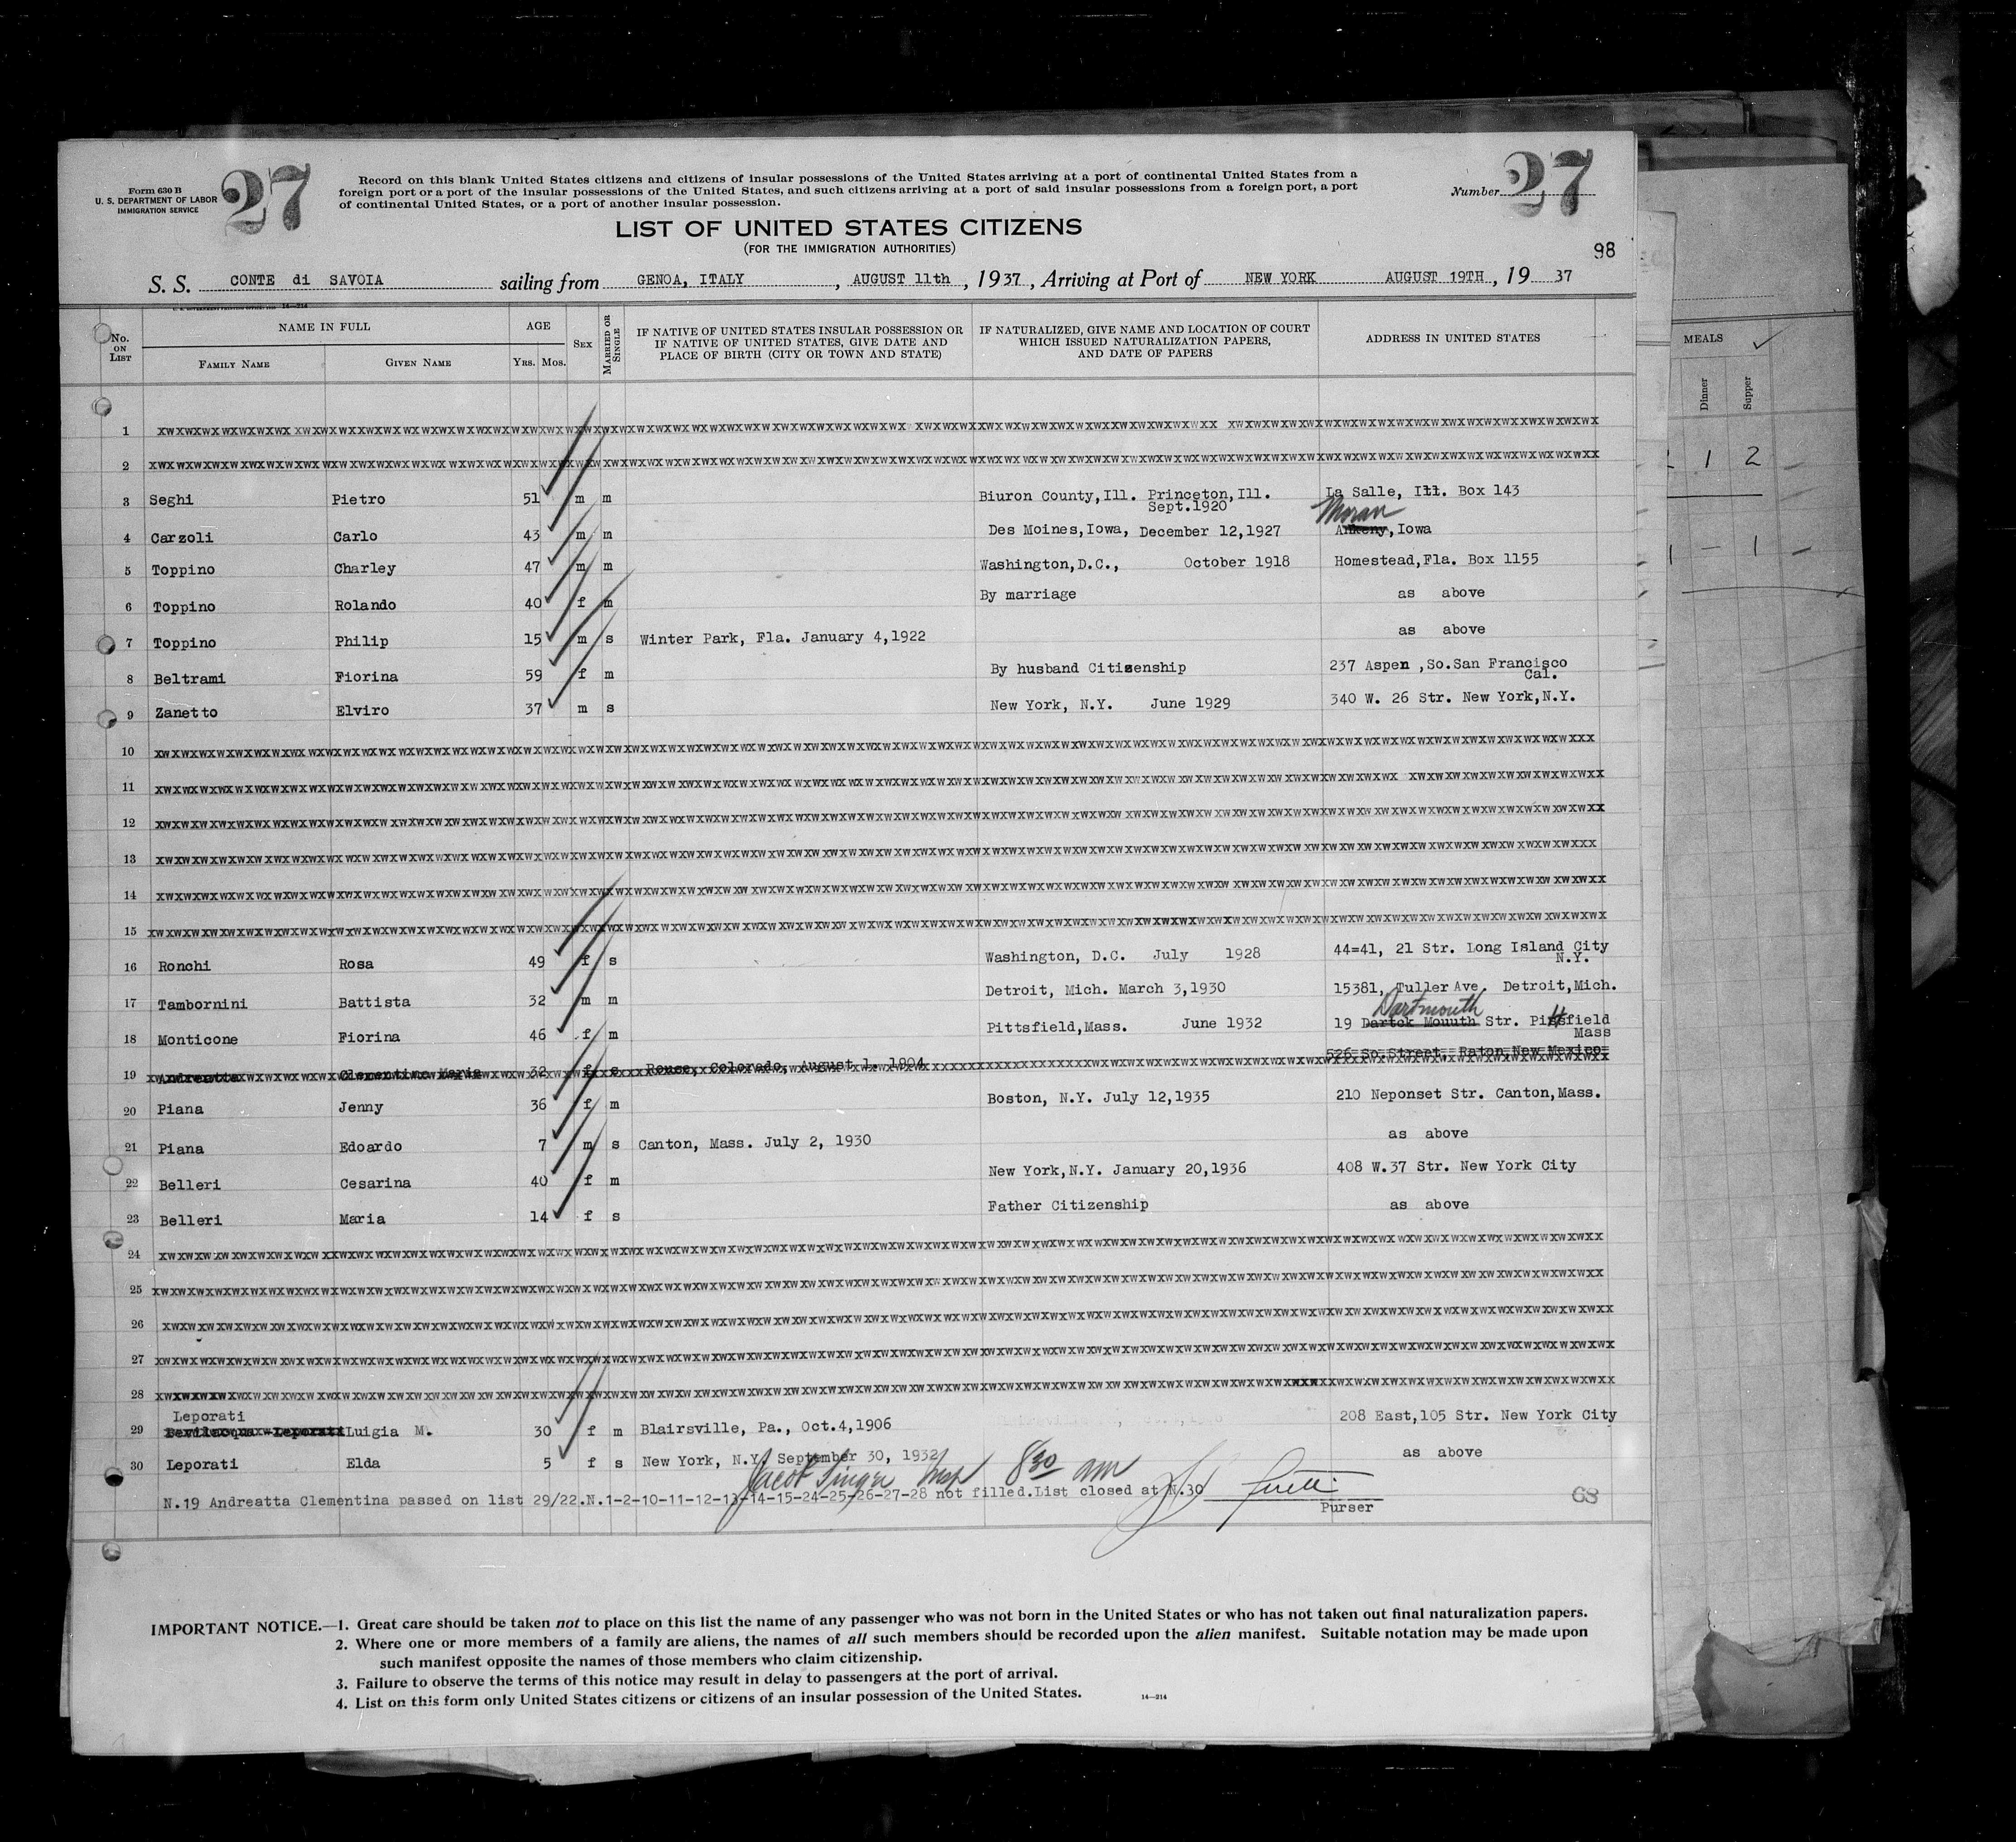 Form 630 B
U. S. DEPARTMENT OF LABOR
IMMIGRATION SERVICE
27
Record on this blank United States citizens and citizens of insular possessions of the United States arriving at a port of continental United States from a
foreign port or a port of the insular possessions of the United States, and such citizens arriving at a port of said insular possessions from a foreign port, a port
of continental United States, or a port of another insular possession.
Number 27
LIST OF UNITED STATES CITIZENS
(FOR THE IMMIGRATION AUTHORITIES)
98
S. S. CONTE di SAVOIA sailing from GENOA, ITALY, AUGUST 11th, 1937, Arriving at Port of NEW YORK AUGUST 19TH, 19 37
No. ON LIST
NAME IN FULL
FAMILY NAME
GIVEN NAME
AGE
YRS. MOS.
SEX
MARRIED OR SINGLE
IF NATIVE OF UNITED STATES INSULAR POSSESSION OR
IF NATIVE OF UNITED STATES, GIVE DATE AND
PLACE OF BIRTH (CITY OR TOWN AND STATE)
IF NATURALIZED, GIVE NAME AND LOCATION OF COURT
WHICH ISSUED NATURALIZATION PAPERS,
AND DATE OF PAPERS
ADDRESS IN UNITED STATES
MEALS
Dinner
Supper
1
2
1 2
3 Seghi Pietro 51 m m Biuron County,Ill. Princeton,Ill. Sept.1920 La Salle, Ill. Box 143
Moran
4 Carzoli Carlo 43 m m Des Moines,Iowa, December 12,1927 Ankeny,Iowa
5 Toppino Charley 47 m m Washington,D.C., October 1918 Homestead,Fla. Box 1155
1 - 1 -
6 Toppino Rolando 40 f m By marriage as above
7 Toppino Philip 15 m s Winter Park, Fla. January 4,1922 as above
8 Beltrami Fiorina 59 f m By husband Citizenship 237 Aspen ,So.San Francisco Cal.
9 Zanetto Elviro 37 m s New York, N.Y. June 1929 340 W. 26 Str. New York,N.Y.
10
11
12
13
14
15
16 Ronchi Rosa 49 f s Washington, D.C. July 1928 44=41, 21 Str. Long Island City N.Y.
17 Tambornini Battista 32 m m Detroit, Mich. March 3,1930 15381, Tuller Ave. Detroit,Mich.
Dartmouth
18 Monticone Fiorina 46 f m Pittsfield,Mass. June 1932 19 Dartok Mouuth Str. Pittsfield Mass
19 Andreatta Clementina Maria 32 f s Rouse, Colorado, August 1. 1904 526 So Street, Raton New Mexico
20 Piana Jenny 36 f m Boston, N.Y. July 12,1935 210 Neponset Str. Canton,Mass.
21 Piana Edoardo 7 m s Canton, Mass. July 2, 1930 as above
22 Belleri Cesarina 40 f m New York,N.Y. January 20,1936 408 W.37 Str. New York City
23 Belleri Maria 14 f s Father Citizenship as above
24
25
26
27
28
Leporati
29 Bevilacqua Leporati Luigia M. 30 f m Blairsville, Pa., Oct.4,1906 208 East,105 Str. New York City
30 Leporati Elda 5 f s New York, N.Y. September 30, 1932 as above
Jacob Singer Insp 8 30 am
N.19 Andreatta Clementina passed on list 29/22.N.1-2-10-11-12-13-14-15-24-25-26-27-28 not filled.List closed at N.30
Purser
68
IMPORTANT NOTICE.—1. Great care should be taken not to place on this list the name of any passenger who was not born in the United States or who has not taken out final naturalization papers.
2. Where one or more members of a family are aliens, the names of all such members should be recorded upon the alien manifest. Suitable notation may be made upon
such manifest opposite the names of those members who claim citizenship.
3. Failure to observe the terms of this notice may result in delay to passengers at the port of arrival.
4. List on this form only United States citizens or citizens of an insular possession of the United States.
14—214